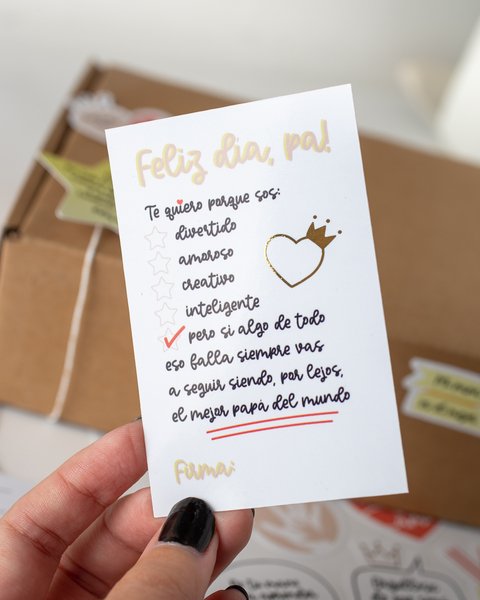 Feliz día, pa!
Te quiero porque sos:
divertido
amoroso
creativo
inteligente
pero si algo de todo
eso falla siempre vas
a seguir siendo, por lejos,
el mejor papá del mundo
Firma: